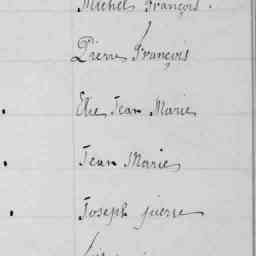 Michel François.
Pierre François
Elie Jean Marie
Jean Marie
Joseph pierre